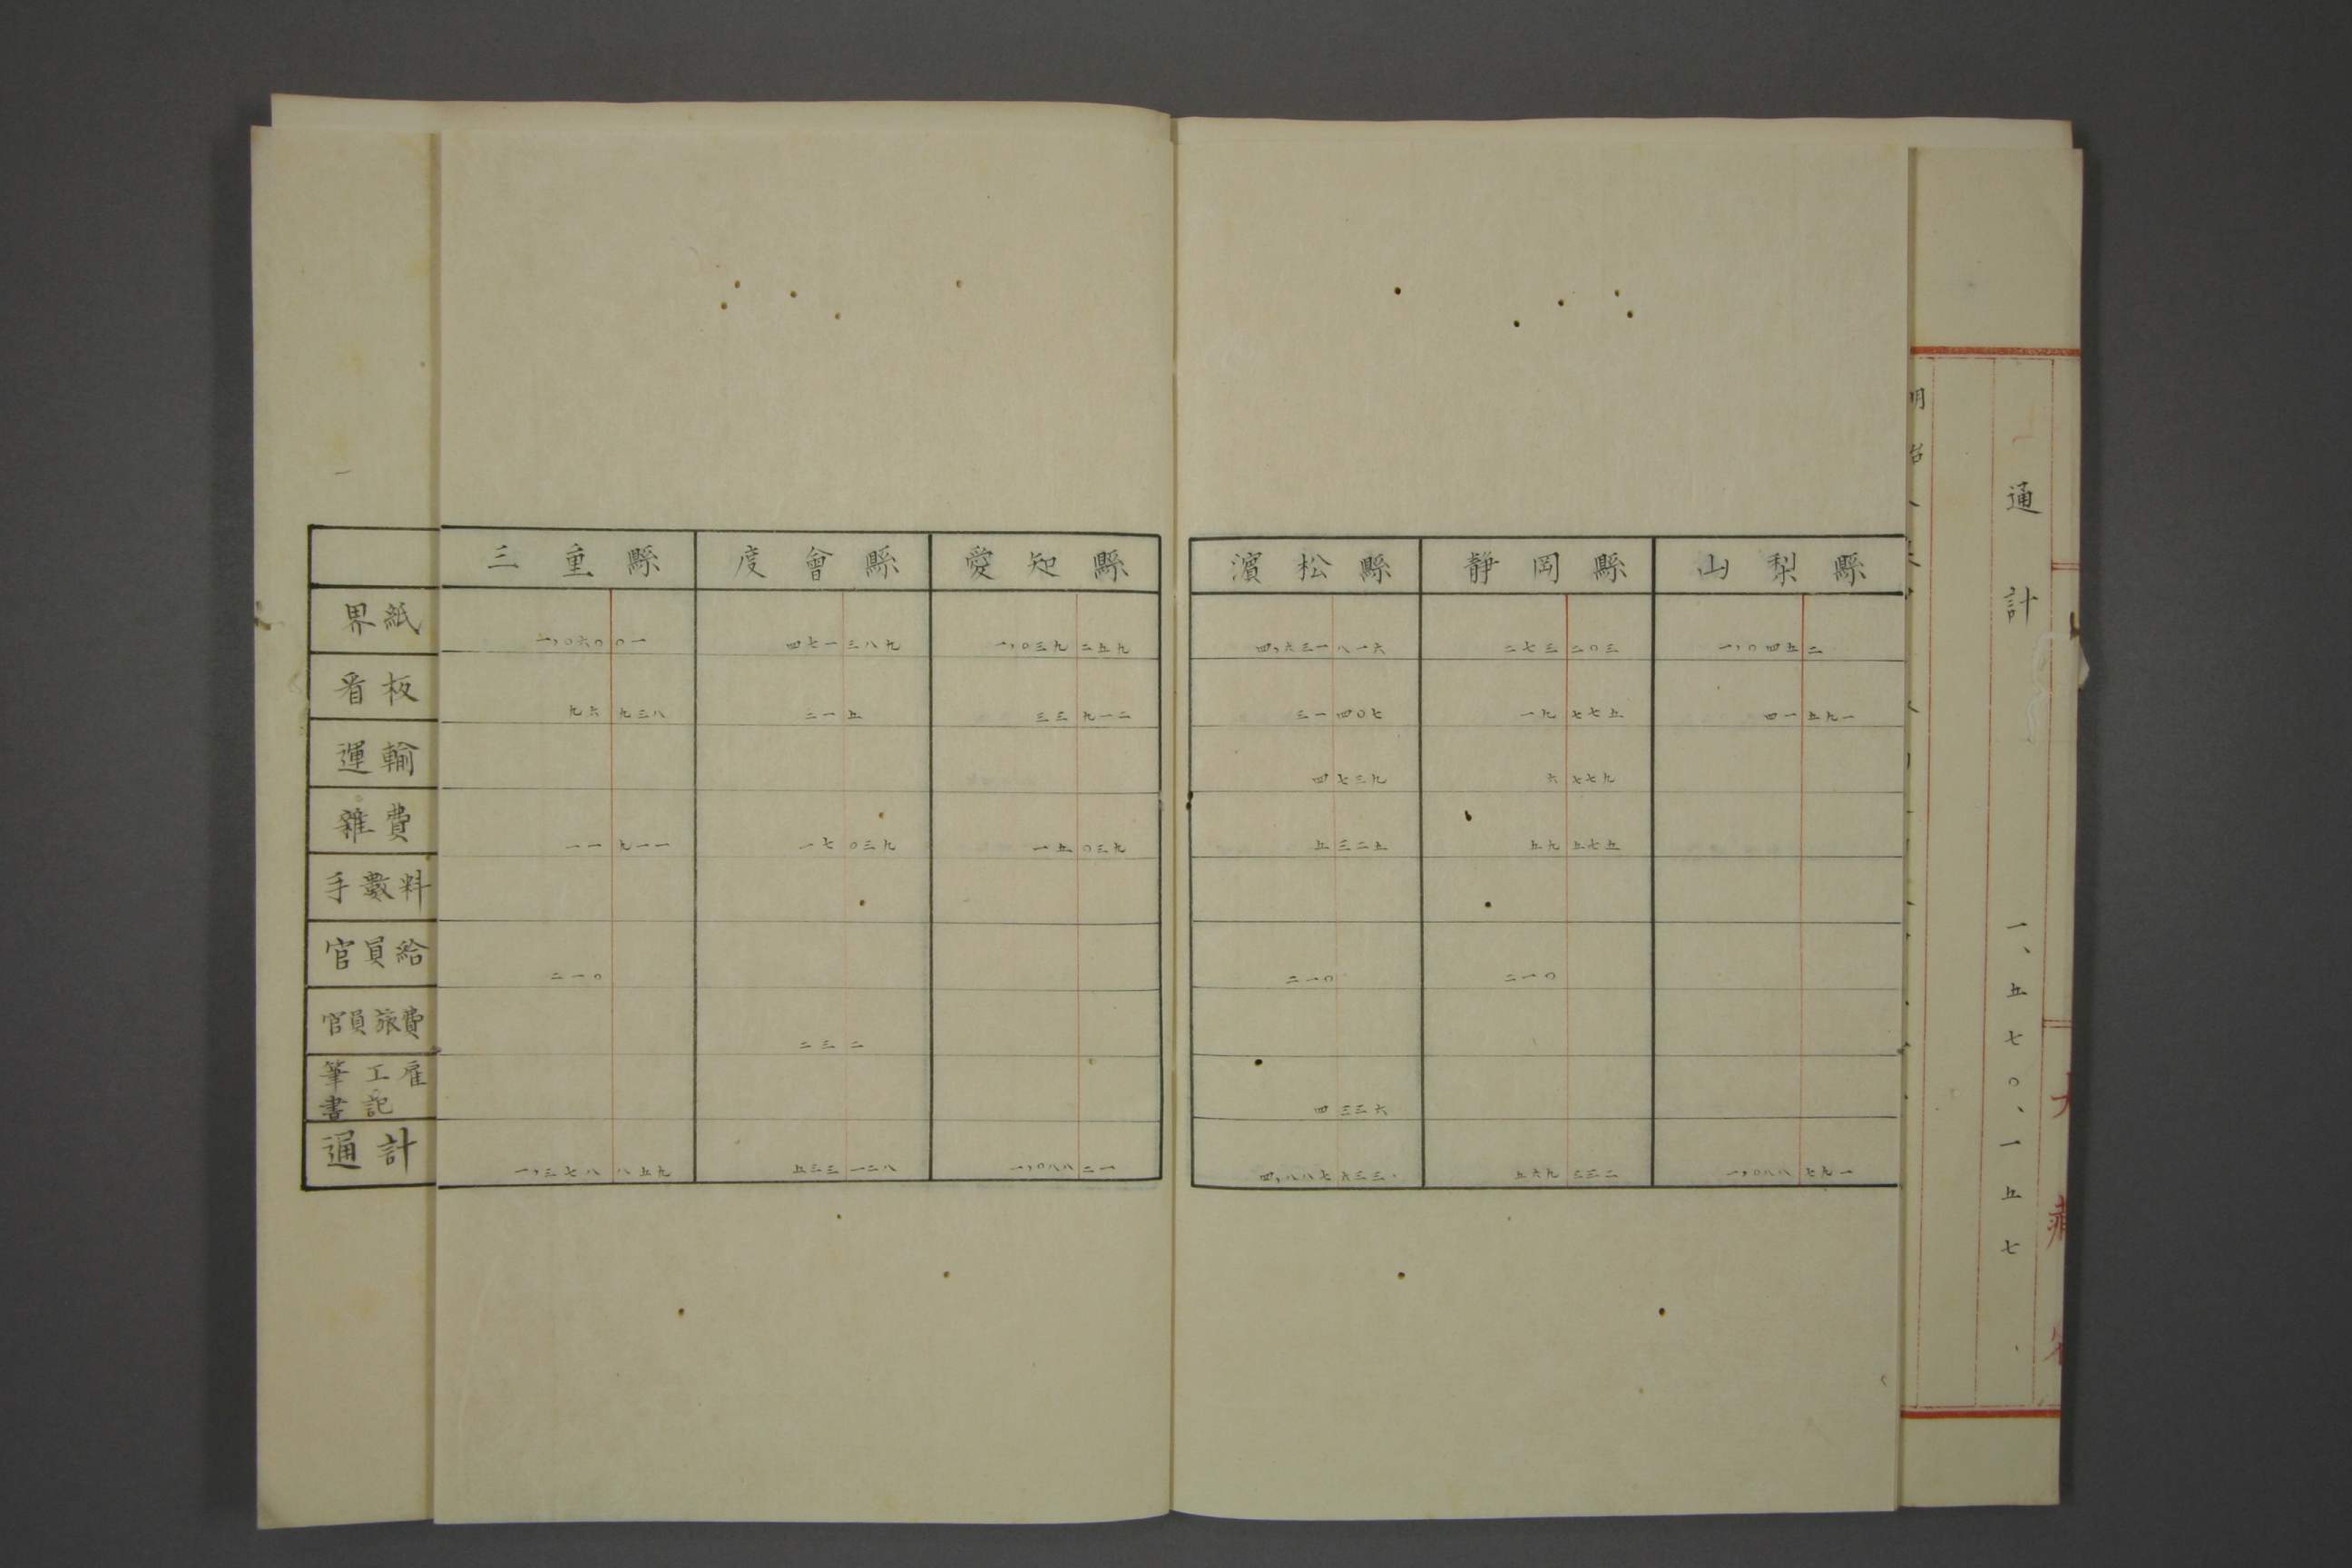 通計 一、五七〇、一五七
三重縣 度會縣 愛知縣 濱松縣 靜岡縣 山梨縣
界紙 一,〇六〇〇一 四七一三八九 一,〇三九二五九 四,六三一八一六 二七三二〇三 一,〇四五二
看板 九六九三八 二一五 三三九一二 三一四〇七 一九七七五 四一五九一
運輸 四七三九 六七七九
雜費 一一九一一 一七〇三九 一五〇三九 五三二五 五九五七五
手數料
官員給 二一〇 二一〇 二一〇
官員旅費 二三二
筆工雇書記 四三三六
通計 一,三七八八五九 五三三一二八 一,〇八八二一 四,八八七六二三 五六九三三二 一,〇八八七九一